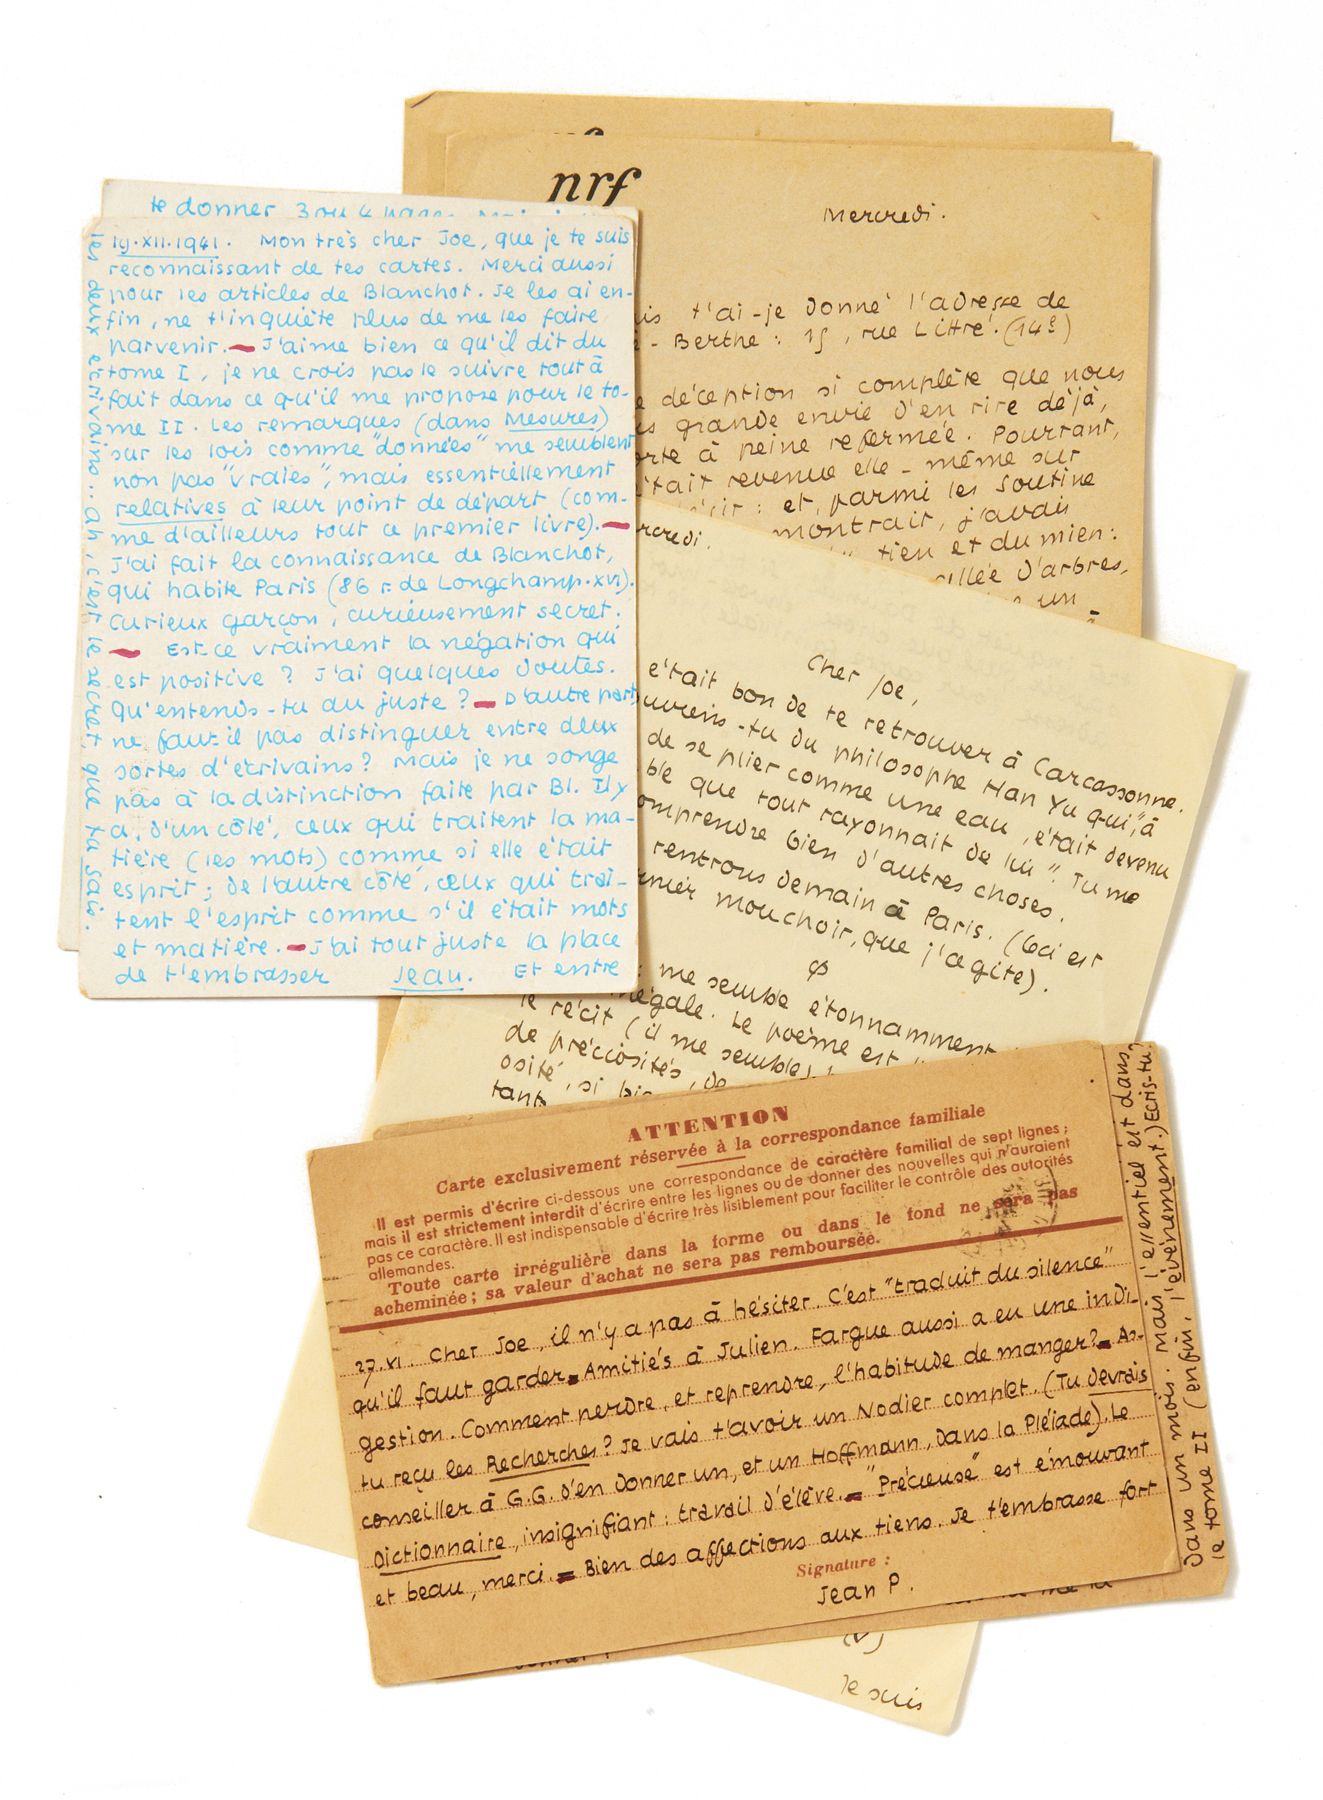 te donner 3 ou 4 pages.
19.XII.1941. Mon très cher Joe, que je te suis
reconnaissant de tes cartes. Merci aussi
pour les articles de Blanchot. Je les ai en-
fin, ne t'inquiète plus de me les faire
parvenir. — J'aime bien ce qu'il dit du
tome I, je ne crois pas le suivre tout à
fait dans ce qu'il me propose pour le to-
me II. Les remarques (dans Mesures)
sur les lois comme "données" me semblent
non pas "vraies", mais essentiellement
relatives à leur point de départ (com-
me d'ailleurs tout ce premier livre). —
J'ai fait la connaissance de Blanchot,
qui habite Paris (86 r. de Longchamp. XVI).
Curieux garçon, curieusement secret.
— Est-ce vraiment la négation qui
est positive ? J'ai quelques doutes.
Qu'entends-tu au juste ? — D'autre part,
ne faut-il pas distinguer entre deux
sortes d'écrivains ? Mais je ne songe
pas à la distinction faite par Bl. Il y
a, d'un côté, ceux qui traitent la ma-
tière (les mots) comme si elle était
esprit ; de l'autre côté, ceux qui trai-
tent l'esprit comme s'il était mots
et matière. — J'ai tout juste la place
de t'embrasser Jean. Et entre
les deux écrivains.. ah, c'est le secret, que tu sais.
nrf
Mercredi.
t'ai-je donné l'adresse de
- Berthe : 15, rue Littré. (14e)
déception si complète que nous
grande envie d'en rire déjà,
à peine refermée. Pourtant,
était revenue elle-même sur
: et, parmi les Soutine
montrait, j'avais
tien et du mien :
d'arbres,
un
à
rcredi.
Cher Joe,
était bon de te retrouver à Carcassonne.
uviens-tu du philosophe Han Yu qui, "à
de se plier comme une eau, était devenu
ble que tout rayonnait de lui". Tu me
omprendre bien d'autres choses.
rentrons demain à Paris. (Ceci est
rnier mouchoir, que j'agite).
me semble étonnamment
inégale. Le poème est
le récit (il me semble)
de préciosités, de
osité, si bien
tant
ATTENTION
Carte exclusivement réservée à la correspondance familiale
Il est permis d'écrire ci-dessous une correspondance de caractère familial de sept lignes ;
mais il est strictement interdit d'écrire entre les lignes ou de donner des nouvelles qui n'auraient
pas ce caractère. Il est indispensable d'écrire très lisiblement pour faciliter le contrôle des autorités
allemandes.
Toute carte irrégulière dans la forme ou dans le fond ne sera pas
acheminée ; sa valeur d'achat ne sera pas remboursée.
27.VI. Cher Joe, il n'y a pas à hésiter. C'est "traduit du silence"
qu'il faut garder. — Amitiés à Julien. Fargue aussi a eu une indi-
gestion. Comment perdre, et reprendre, l'habitude de manger? — As-
tu reçu les Recherches ? Je vais t'avoir un Nodier complet. (Tu devrais
conseiller à G.G. d'en donner un, et un Hoffmann, dans la Pléiade). Le
Dictionnaire, insignifiant : travail d'élève. — "Précieuse" est émouvant
et beau, merci. — Bien des affections aux tiens. Je t'embrasse fort
Signature :
Jean P.
Dans un mois. Mais l'essentiel est dans
le tome II (enfin, l'événement.) Ecris-tu?
Je suis